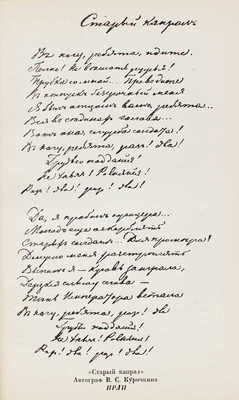 Старый капралъ
Въ ногу, ребята, идите.
Полно! Не вѣшать ружья!
Трубка со мной... Проводите
Въ отпускъ безсрочный меня
Я былъ отцомъ вамъ, ребята...
Вся въ сѣдинахъ голова...
Вотъ она, служба солдата!
Въ ногу, ребята, разъ! Два!
Грудью подайся!
Не хнычь! Равняйся!
Разъ! Два! разъ! Два!
Да, я прибилъ офицера...
Молодъ еще оскорблять
Старыхъ солдатъ... Для примѣра
Должно меня разстрѣлять
Выпилъ я — Кровь заиграла,
Дерзкія слышу слова —
Тѣнь Императора встала
Въ ногу, ребята, разъ! Два
Грудью подайся!
Не хнычь! Равняйся!
Разъ! Два! разъ! Два!
«Старый капрал»
Автограф В. С. Курочкина
ИРЛИ